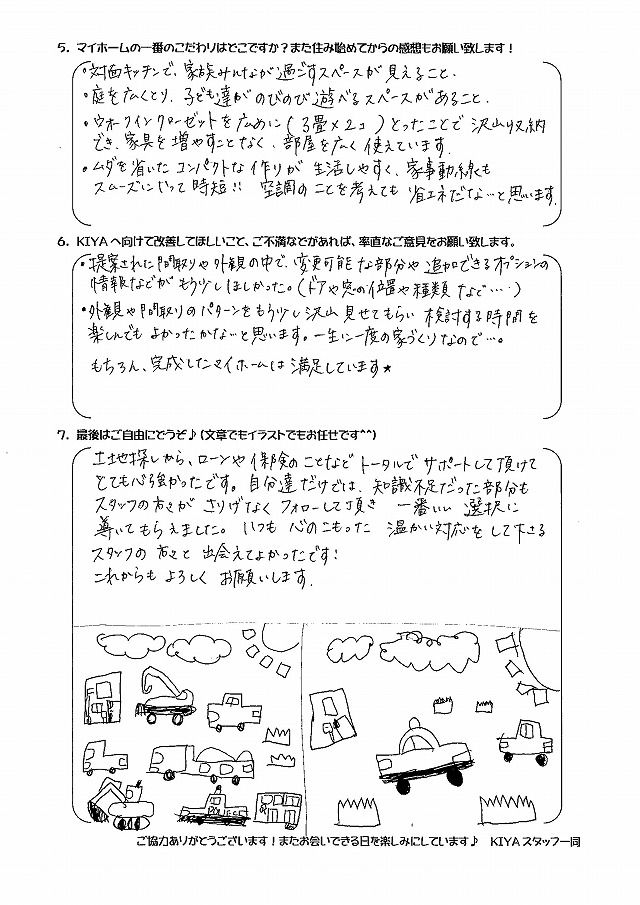 5. マイホームの一番のこだわりはどこですか？また住み始めてからの感想もお願い致します！
・対面キッチンで、家族みんなが過ごすスペースが見えること。
・庭を広くとり、子ども達がのびのび遊べるスペースがあること。
・ウォークインクローゼットを広めに(3畳×2コ)とったことで沢山収納
でき、家具を増やすことなく、部屋を広く使えています。
・ムダを省いたコンパクトな作りが生活しやすく、家事動線も
スムーズにいって時短!! 空調のことを考えても省エネだな…と思います。
6. KIYAへ向けて改善してほしいこと、ご不満などがあれば、率直なご意見をお願い致します。
・提案された間取りや外観の中で、変更可能な部分や追加できるオプションの
情報などがもう少しほしかった。(ドアや窓の位置や種類など…)
・外観や間取りのパターンをもう少し沢山見せてもらい検討する時間を
楽しんでもよかったかな…と思います。一生に一度の家づくりなので…。
もちろん、完成したマイホームは満足しています★
7. 最後はご自由にどうぞ♪(文章でもイラストでもお任せです^^)
土地探しから、ローンや保険のことなどトータルでサポートして頂けて
とても心強かったです。自分達だけでは、知識不足だった部分も
スタッフの方々がさりげなくフォローして頂き 一番いい選択に
導いてもらえました。いつも心のこもった 温かい対応をして下さる
スタッフの方々と出会えてよかったです!
これからもよろしくお願いします.
POLICE
ご協力ありがとうございます！またお会いできる日を楽しみにしています♪ KIYAスタッフ一同